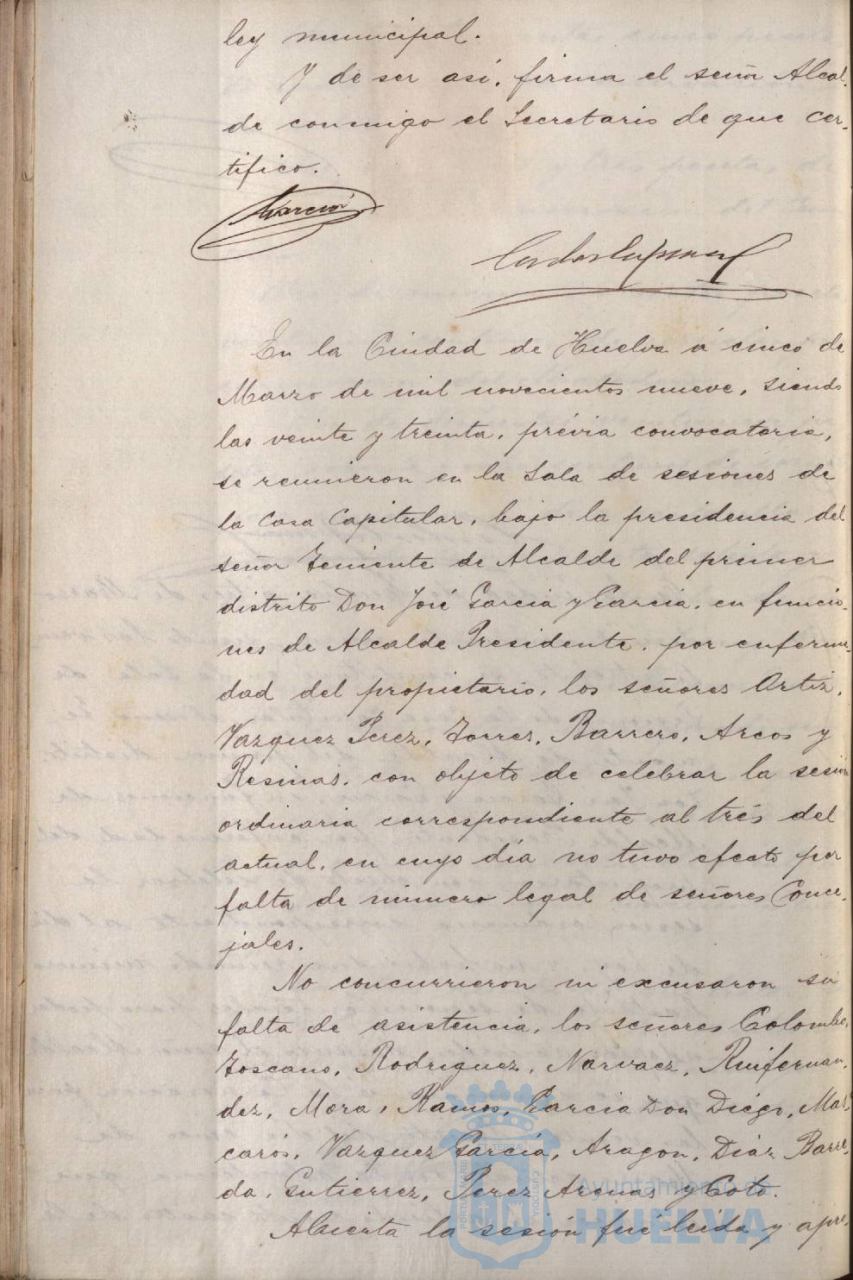 ley municipal.
Y de ser así, firma el señor Alcal-
de conmigo el Secretario de que cer-
tifico.
En la Ciudad de Huelva á cinco de
Marzo de mil novecientos nueve, siendo
las veinte y treinta, prévia convocatoria,
se reunieron en la Sala de sesiones de
la Casa Capitular, bajo la presidencia del
señor Teniente de Alcalde del primer
distrito Don José Garcia y Garcia, en funcio-
nes de Alcalde Presidente, por enferme-
dad del propietario, los señores Ortiz,
Vazquez Perez, Torres, Barrero, Arcos y
Resinas, con objeto de celebrar la sesión
ordinaria correspondiente al trés del
actual, en cuyo dia no tuvo efecto por
falta de número legal de señores Conce-
jales.
No concurrieron ni excusaron su
falta de asistencia, los señores Colombo,
Toscano, Rodriguez, Narvaez, Ruifernan-
dez, Mora, Ramos, Garcia Don Diégo, Mas-
carós, Vazquez García, Aragon, Diaz Barre-
da, Gutierrez, Perez Arenas y Coto.
Abierta la sesión fue leida y apro-
Ayuntamiento de
HUELVA